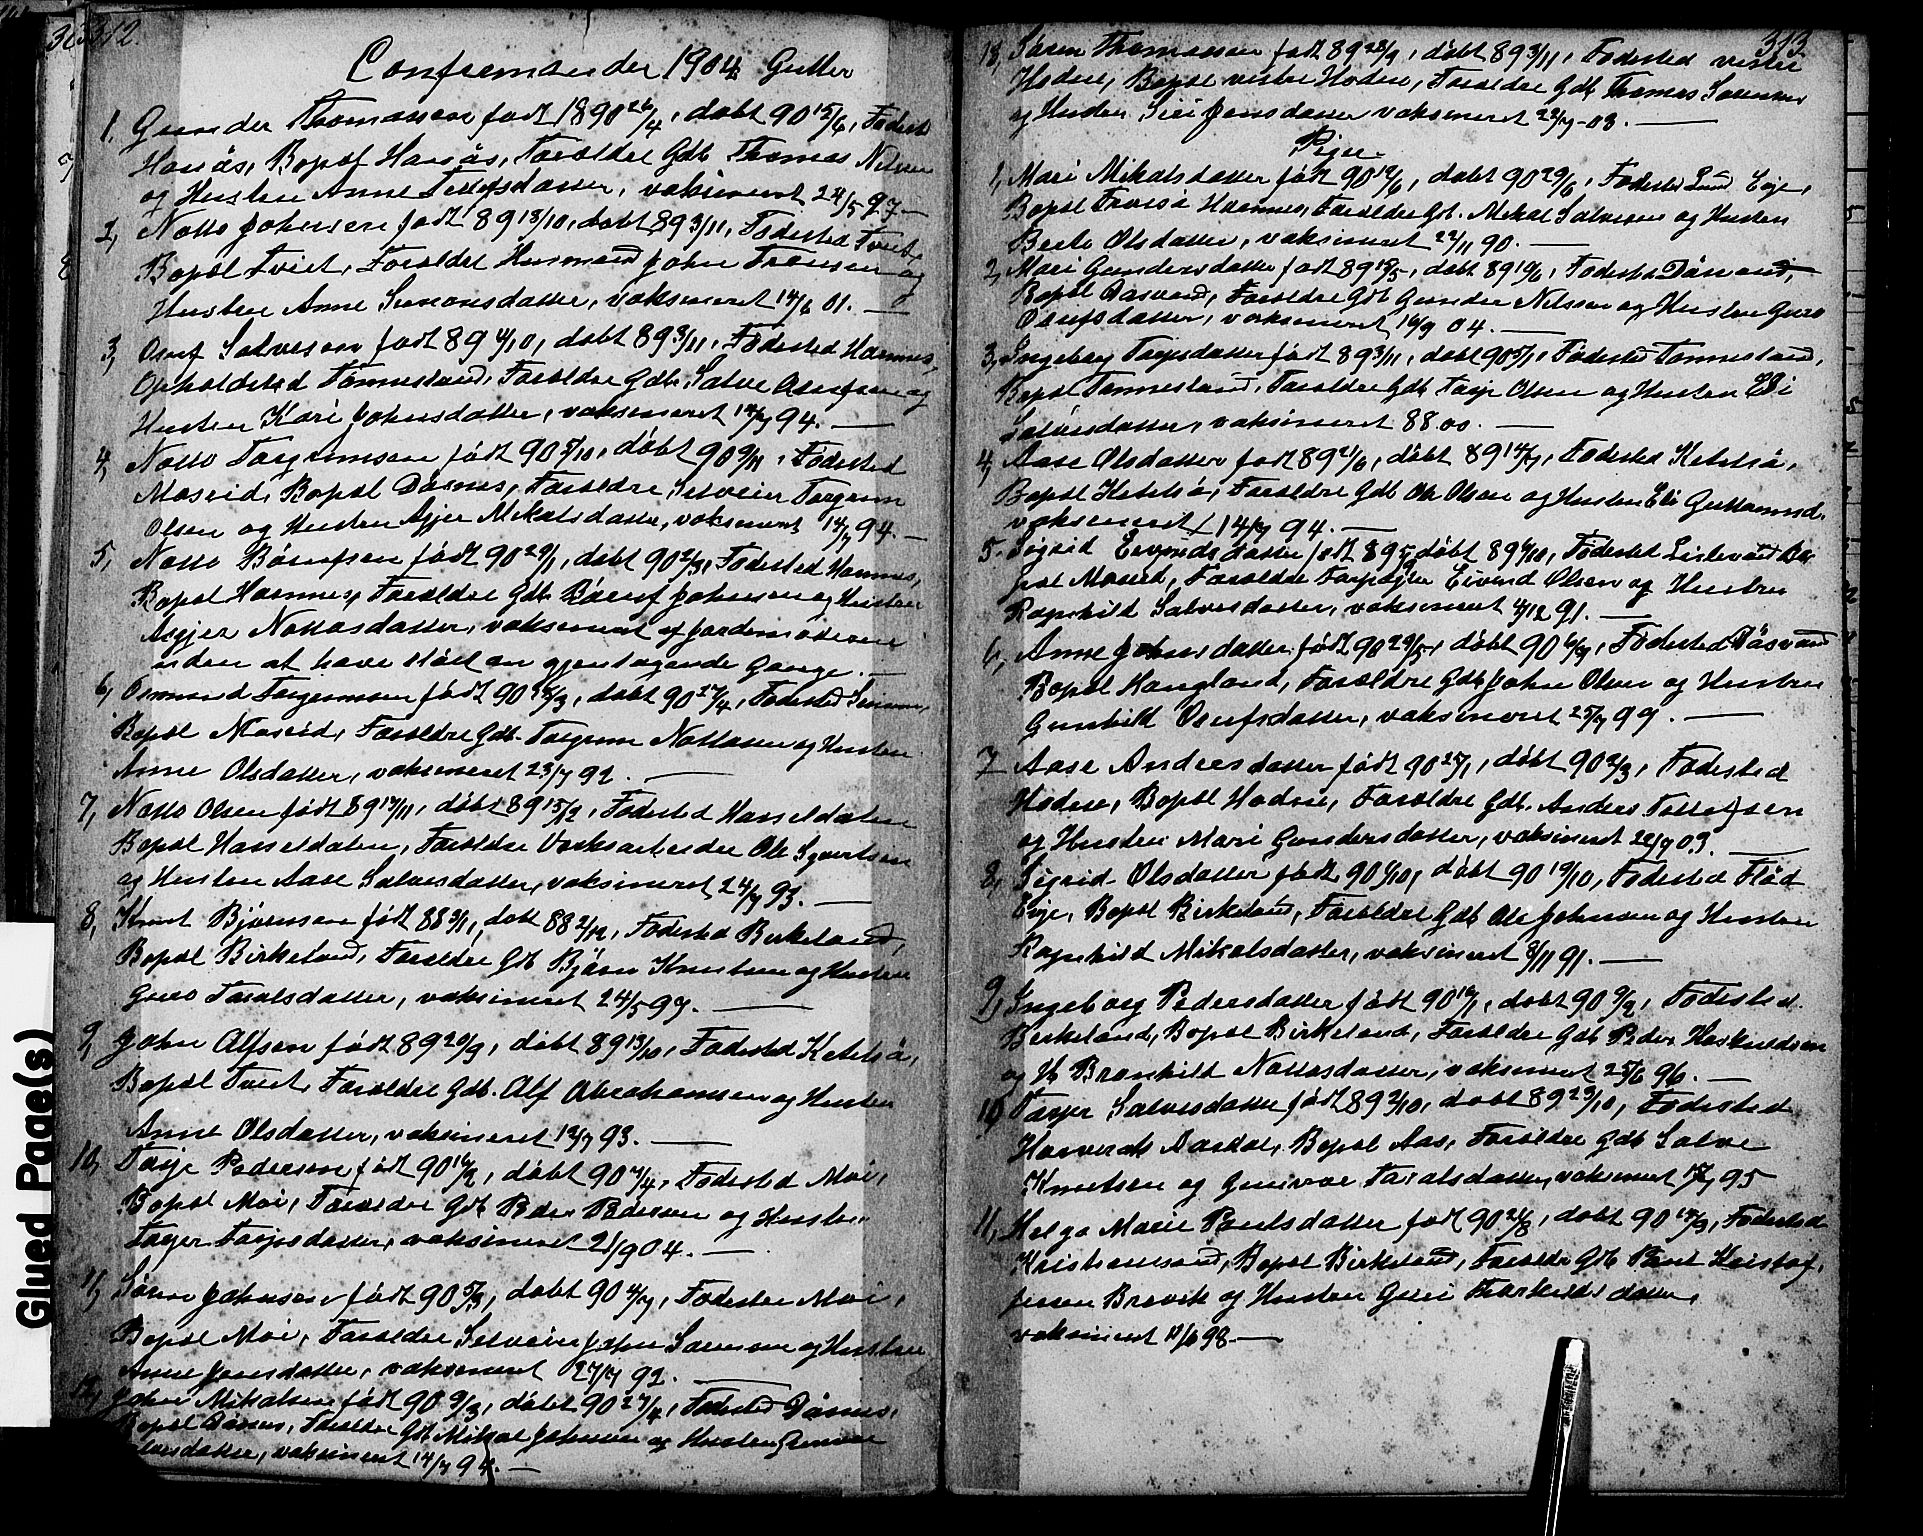 312.
Confirmander 1904 Gutter
1, Gunder Thomassen født 1890 26/4, døbt 90 15/6, Fødested
Hanås, Bopæl Hanås, Forældre Gdb Thomas Nilsen
og Hustru Anne Tellefsdatter, vaksineret 24/5 97 —
2, Notto Johnsen født 89 18/10, døbt 89 3/11, Fødested Tveit,
Bopæl Tveit, Forældre Husmand John Tronsen og
Hustru Anne Simonsdatter, vaksineret 14/6 01. —
3, Osuf Salvesen født 89 4/10, døbt 89 3/11, Fødested Haannes,
Opholdsted Tønnesland, Forældre Gdb. Salve Osufsen og
Hustru Kari Johnsdatter, vaksineret 14/7 94. —
4, Notto Torgrimsen født 90 5/10, døbt 90 9/11, Fødested
Mosrid, Bopæl Dåsnes, Forældre Selveier Torgrim
Olsen og Hustru Asjer Mikalsdatter, vaksineret 14/7 94. —
5, Notto Børufsen født 90 20/1, døbt 90 2/3, Fødested Haannes,
Bopæl Haannes, Forældre Gdb Børuf Johnsen og Hustru
Asgjer Nottosdatter, vaksineret af Jordemoderen
uden at have slået an gjentagende Gange. —
6, Osmund Torgrimsen født 90 18/3, døbt 90 27/4, Fødested
Bopæl Mosrid, Forældre Gdb. Torgrim Nottosen og Hustru
Anne Olsdatter, vaksineret 23/7 92. —
7, Notto Olsen født 89 17/11, døbt 89 15/12, Fødested Hasseldalen
Bopæl Hasseldalen, Forældre Værksarbeider Ole Sjurtsen
og Hustru Aase Salvesdatter, vaksineret 24/7 93. —
8, Knut Bjørnsen født 88 3/11, døbt 88 2/12, Fødested Birkeland,
Bopæl Birkeland, Forældre Gdb Bjørn Knutsen og Hustru
Guro Taralsdatter, vaksineret 24/5 97. —
9, John Alfsen født 89 20/9, døbt 89 13/10, Fødested Ketelså,
Bopæl Tveit, Forældre Gdb. Alf Abrahamsen og Hustru
Anne Olsdatter, vaksineret 12/7 93. —
10, Tarje Pedersen født 90 16/2, døbt 90 7/4, Fødested Moi,
Bopæl Moi, Forældre Gdb Peder Pedersen og Hustru
Torjer Torjusdatter, vaksineret 21/9 04. —
11, Søren Johnsen født 90 5/3, døbt 90 4/7, Fødested Moi,
Bopæl Moi, Forældre Selveier John Sørensen og Hustru
Anne Jensdatter, vaksineret 27/7 92. —
12, John Mikalsen født 90 9/3, døbt 90 27/4, Fødested Dåsnes,
Bopæl Dåsnes, Forældre Gdb Mikal Johnsen og Hustru Gunvor
vaksineret 14/7 94. —
313
13, Søren Thomassen født 89 28/9, døbt 89 3/11, Fødested vestre
Hodne, Bopæl vestre Hodne, Forældre Gdb Thomas Sørensen
og Hustru Siri Jensdatter vaksineret 22/7 - 03. —
Piger.
1, Mari Mikalsdatter født 90 12/6, døbt 90 29/6, Fødested Lund Evje,
Bopæl Haannes, Forældre Gdb. Mikal Salvesen og Hustru
Berte Olsdatter, vaksineret 22/11 90. —
2, Mari Gundersdatter født 89 15/5, døbt 89 10/6, Fødested Dåsvand,
Bopæl Dåsvand, Forældre Gdb Gunder Nilssen og Hustru Guro
Osufsdatter, vaksineret 16/9 04. —
3, Ingeborg Torjusdatter født 89 3/11, døbt 90 5/1, Fødested Tønnesland,
Bopæl Tønnesland, Forældre Gdb Torje Olsen og Hustru Eli
Salvesdatter, vaksineret 88.00. —
4, Aase Olsdatter født 89 21/6, døbt 89 14/7, Fødested Ketelså,
Bopæl Ketelså, Forældre Gdb Ole Olsen og Hustru Eli Guttormsd.
vaksineret 14/7 94. —
5. Sigrid Eivindsdatter født 89 døbt 89 6/10, Fødested Lislevand Bo-
pæl Mosrid, Forældre Forpagter Eivind Olsen og Hustru
Ragnhild Salvesdatter, vaksineret 4/12 91. —
6, Anne Johnsdatter født 90 29/5, døbt 90 6/7, Fødested Dåsvand
Bopæl Haugland, Forældre Gdb John Olsen og Hustru
Gunhild Osufsdatter, vaksineret 25/7 99. —
7 Aase Andersdatter født 90 27/1, døbt 90 2/3, Fødested
Hodne, Bopæl Hodne, Forældre Gdb. Anders Tellefsen
og Hustru Mari Gundersdatter, vaksineret 22/7 03. —
8, Sigrid Olsdatter født 90 1/10, døbt 90 19/10, Fødested Flåd
Evje, Bopæl Birkeland, Forældre Gdb Ole Johnsen og Hustru
Ragnhild Mikalsdatter, vaksineret 8/11 91. —
9, Ingeborg Pedersdatter født 90 16/1, døbt 90 9/2, Fødested
Birkeland, Bopæl Birkeland, Forældre Gdb Peder Haskuldsen
og H. Brønhild Nottosdatter, vaksineret 25/6 96. —
10, Torjer Salvesdatter født 89 2/10, døbt 89 23/10, Fødested
Bopæl Aas, Forældre Gdb Salve
Knutsen og Gunvor Taralsdatter, vaksineret 17/7 95
11, Helga Marie Paulsdatter født 90 24/8, døbt 90 14/9, Fødested
Kristianssand, Bopæl Birkeland, Forældre Gdb Paul Kristof-
fersen Brevik og Hustru Guri datter,
vaksineret 11/6 98. —
Glued Page(s)